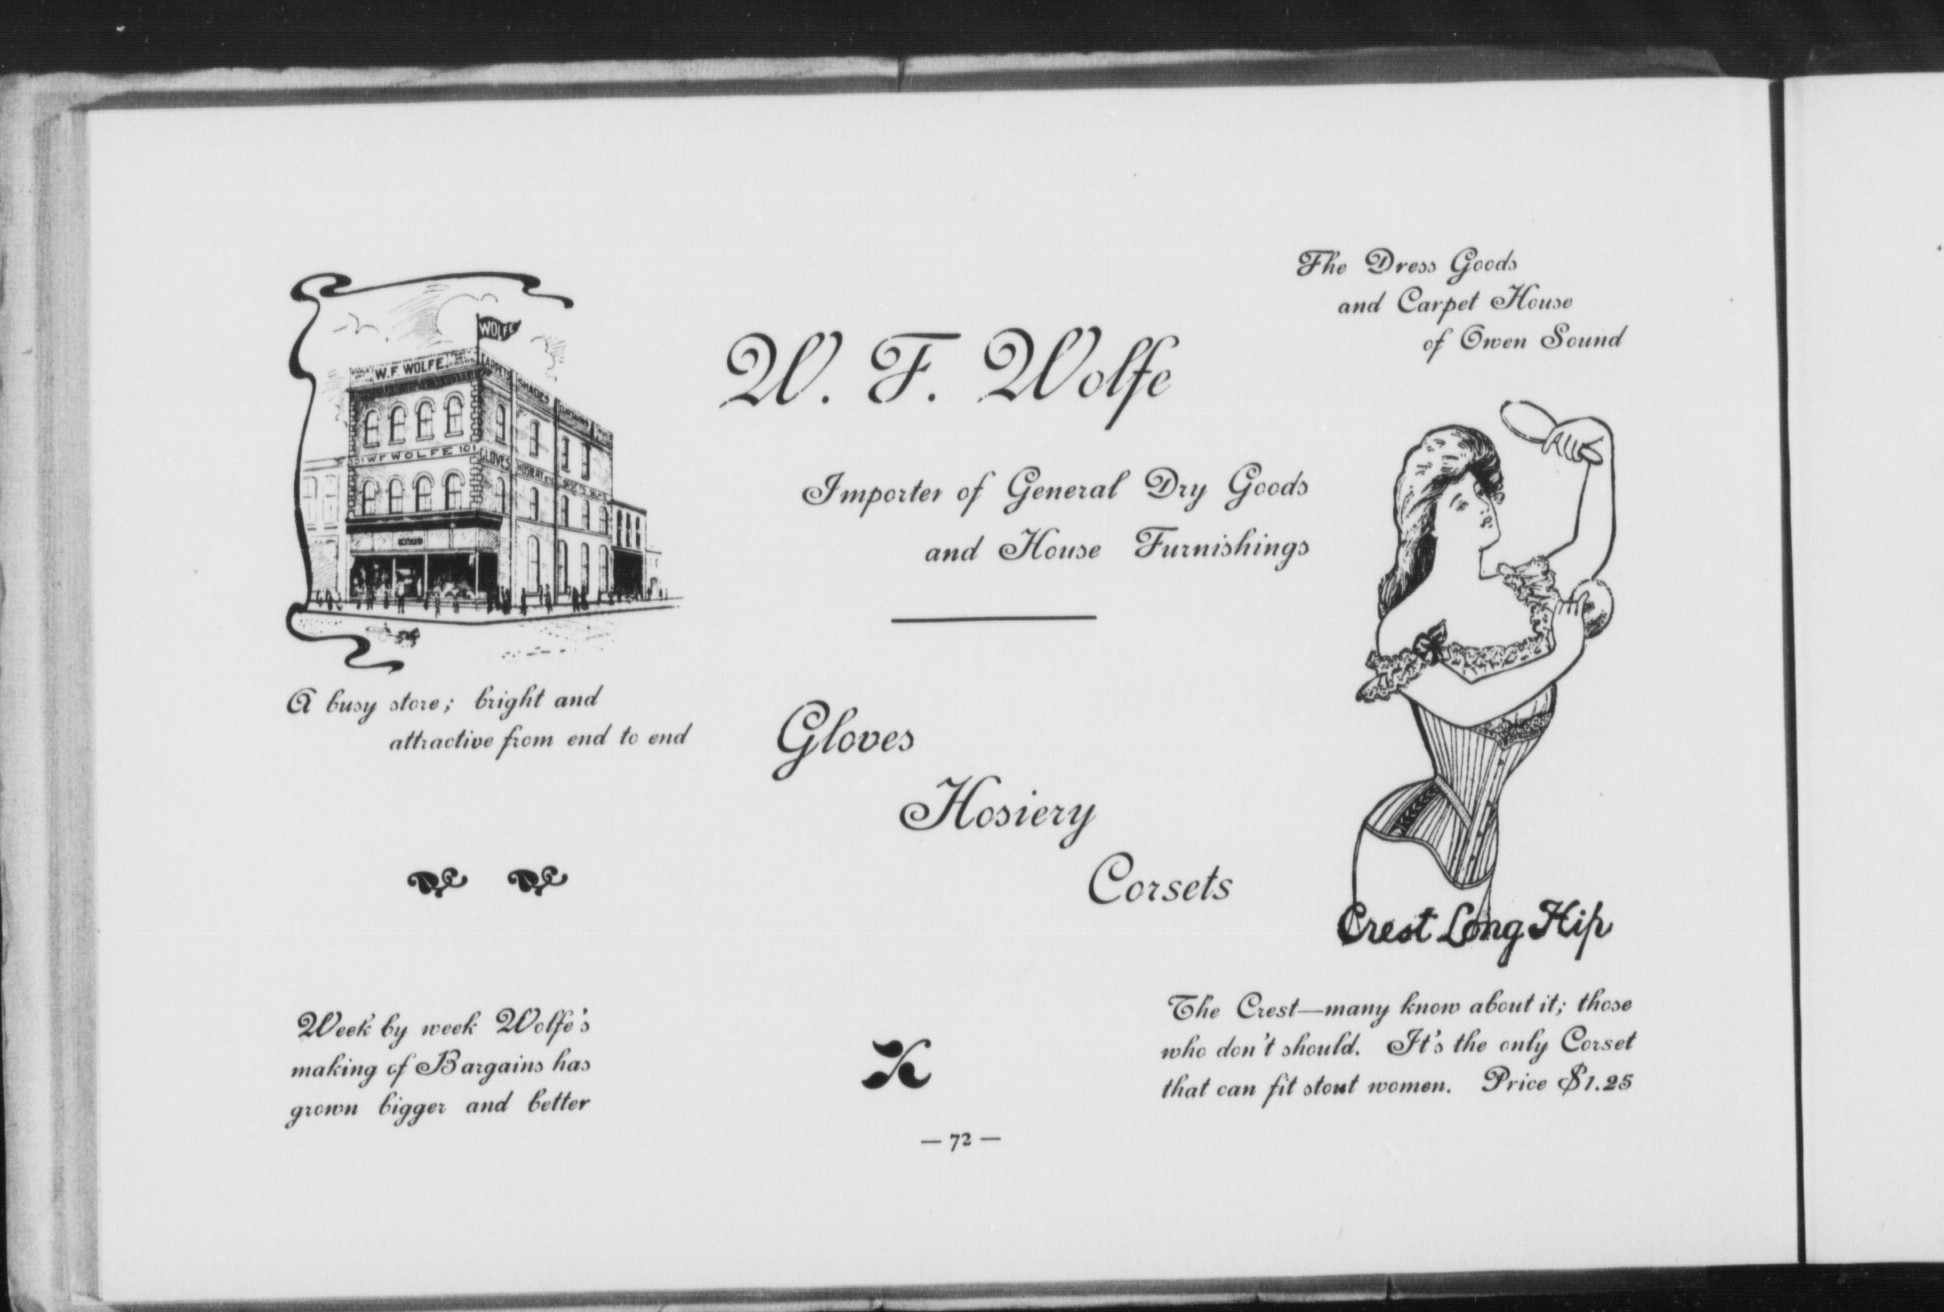 The Dress Goods
and Carpet House
of Owen Sound
WOLFE
W.F. WOLFE.
CARPETS SHADES
101 W F WOLFE 101
GLOVES HOSIERY
W. F. Wolfe
Importer of General Dry Goods
and House Furnishings
A busy store; bright and
attractive from end to end
Gloves
Hosiery
Corsets
Crest Long Hip
Week by week Wolfe's
making of Bargains has
grown bigger and better
The Crest—many know about it; those
who don't should. It's the only Corset
that can fit stout women. Price $1.25
— 72 —